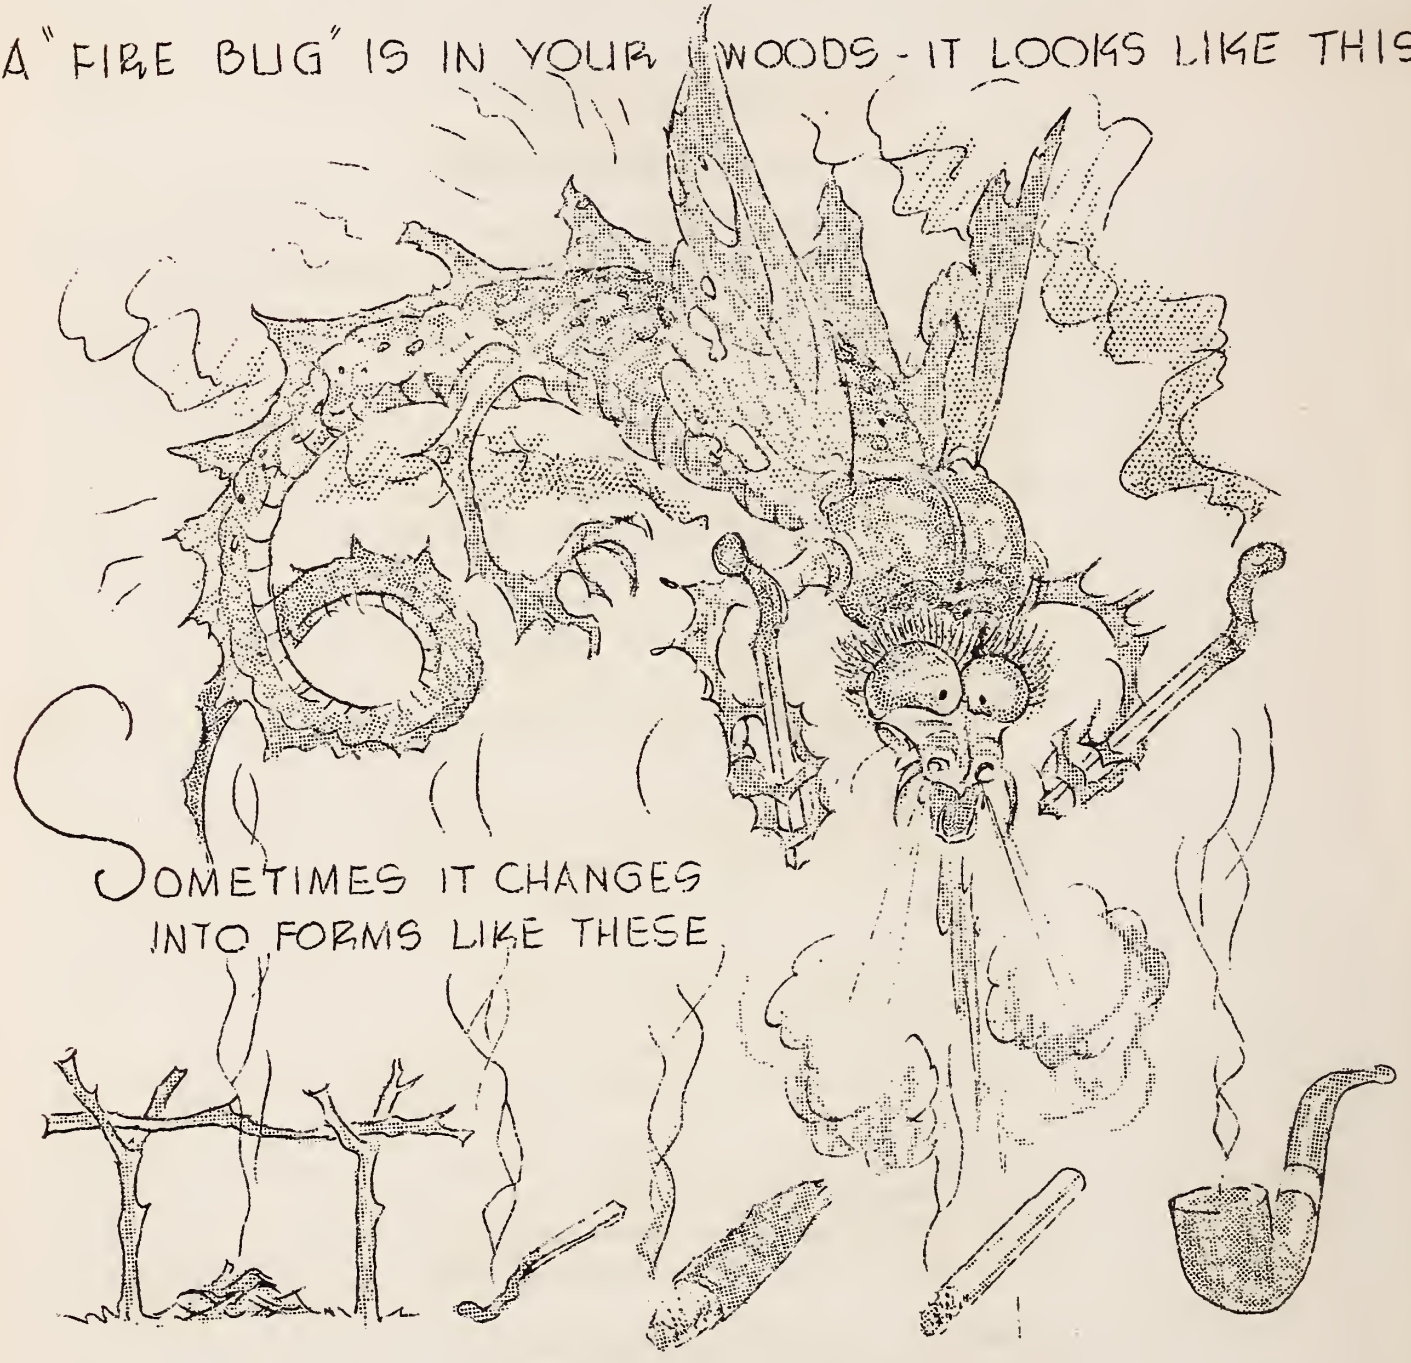 A "FIRE BUG" IS IN YOUR WOODS - IT LOOKS LIKE THIS
SOMETIMES IT CHANGES
INTO FORMS LIKE THESE